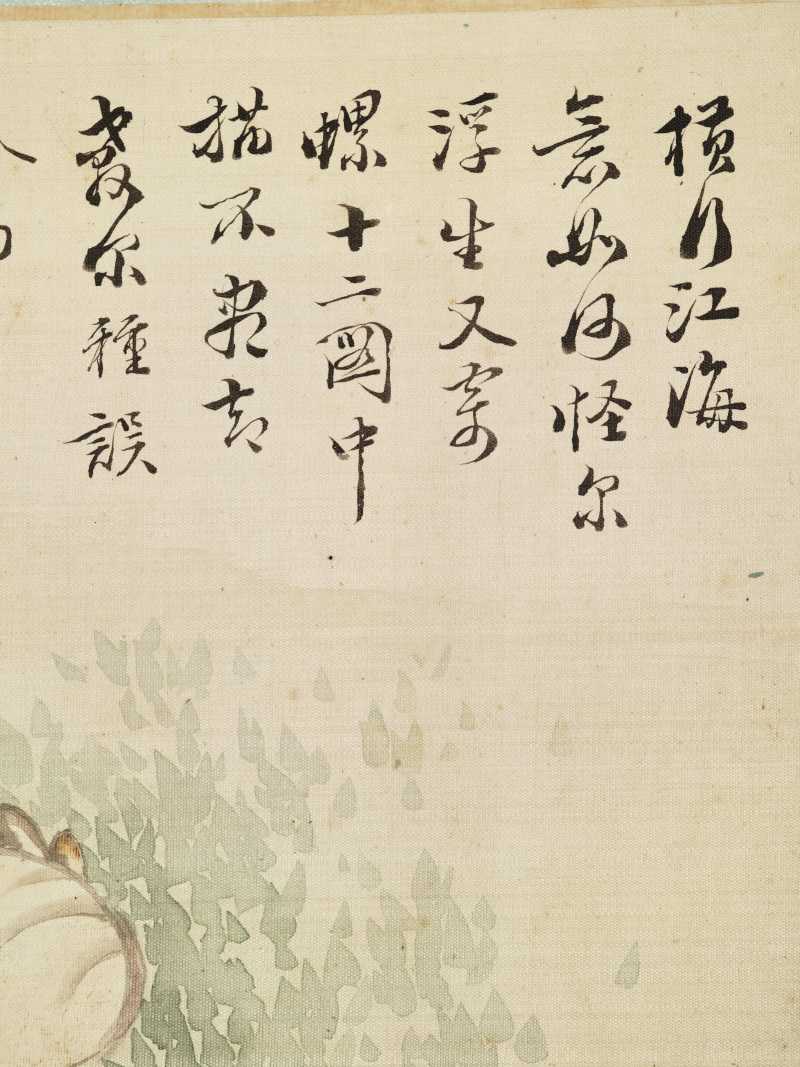 横行江海
意如何怪尔
浮生又寄
螺十二圖中
描不盡却
教尔種誤